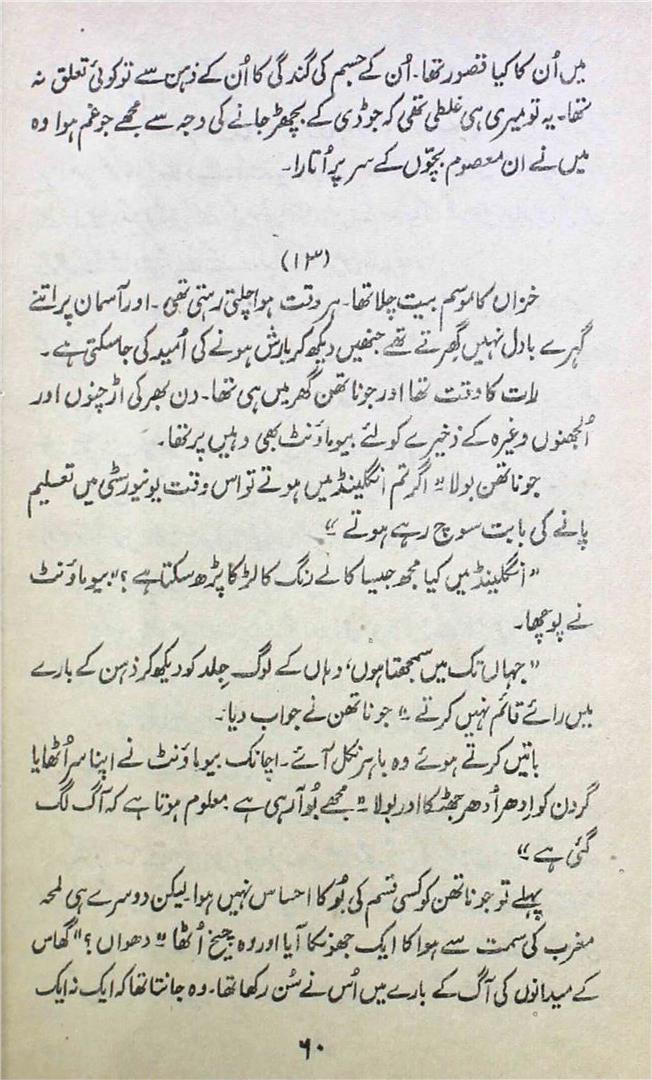 میں اُن کا کیا قصور تھا۔ اُن کے جسم کی گندگی کا اُن کے ذہن سے تو کوئی تعلق نہ
تھا۔ یہ تو میری ہی غلطی تھی کہ جوڈی کے بچھڑ جانے کی وجہ سے مجھے جو غم ہوا وہ
میں نے ان معصوم بچّوں کے سر پر اُتارا۔
(۱۳)
خزاں کا موسم بیت چلا تھا۔ ہر وقت ہوا چلتی رہتی تھی۔ اور آسمان پر اتنے
گہرے بادل نہیں گھرتے تھے جنھیں دیکھ کر بارش ہونے کی اُمید کی جا سکتی ہے۔
رات کا وقت تھا اور جوناتھن گھر میں ہی تھا۔ دن بھر کی اڑچنوں اور
اُلجھنوں وغیرہ کے ذخیرے کو لئے بیوماؤنٹ بھی وہیں پر تھا۔
جوناتھن بولا "اگر تم انگلینڈ میں ہوتے تو اس وقت یونیورسٹی میں تعلیم
پانے کی بابت سوچ رہے ہوتے"
"انگلینڈ میں کیا مجھ جیسا کالے رنگ کا لڑکا پڑھ سکتا ہے؟" بیوماؤنٹ
نے پوچھا۔
"جہاں تک میں سمجھتا ہوں، وہاں کے لوگ جِلد کو دیکھ کر ذہن کے بارے
میں رائے قائم نہیں کرتے" جوناتھن نے جواب دیا۔
باتیں کرتے ہوئے وہ باہر نکل آئے۔ اچانک بیوماؤنٹ نے اپنا سر اُٹھایا
گردن کو اِدھر اُدھر جھٹکا اور بولا "مجھے بُو آ رہی ہے معلوم ہوتا ہے کہ آگ لگ
گئی ہے"
پہلے تو جوناتھن کو کسی قسم کی بُو کا احساس نہیں ہوا لیکن دوسرے ہی لمحہ
مغرب کی سمت سے ہوا کا ایک جھونکا آیا اور وہ چیخ اُٹھا "دھواں؟" گھاس
کے میدانوں کی آگ کے بارے میں اُس نے سُن رکھا تھا۔ وہ جانتا تھا کہ ایک نہ ایک
۶۰